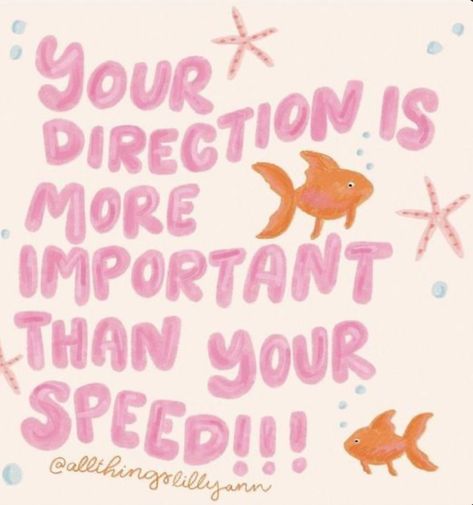 YOUR
DIRECTION IS
MORE
IMPORTANT
THAN YOUR
SPEED!!!
@allthingslillyann